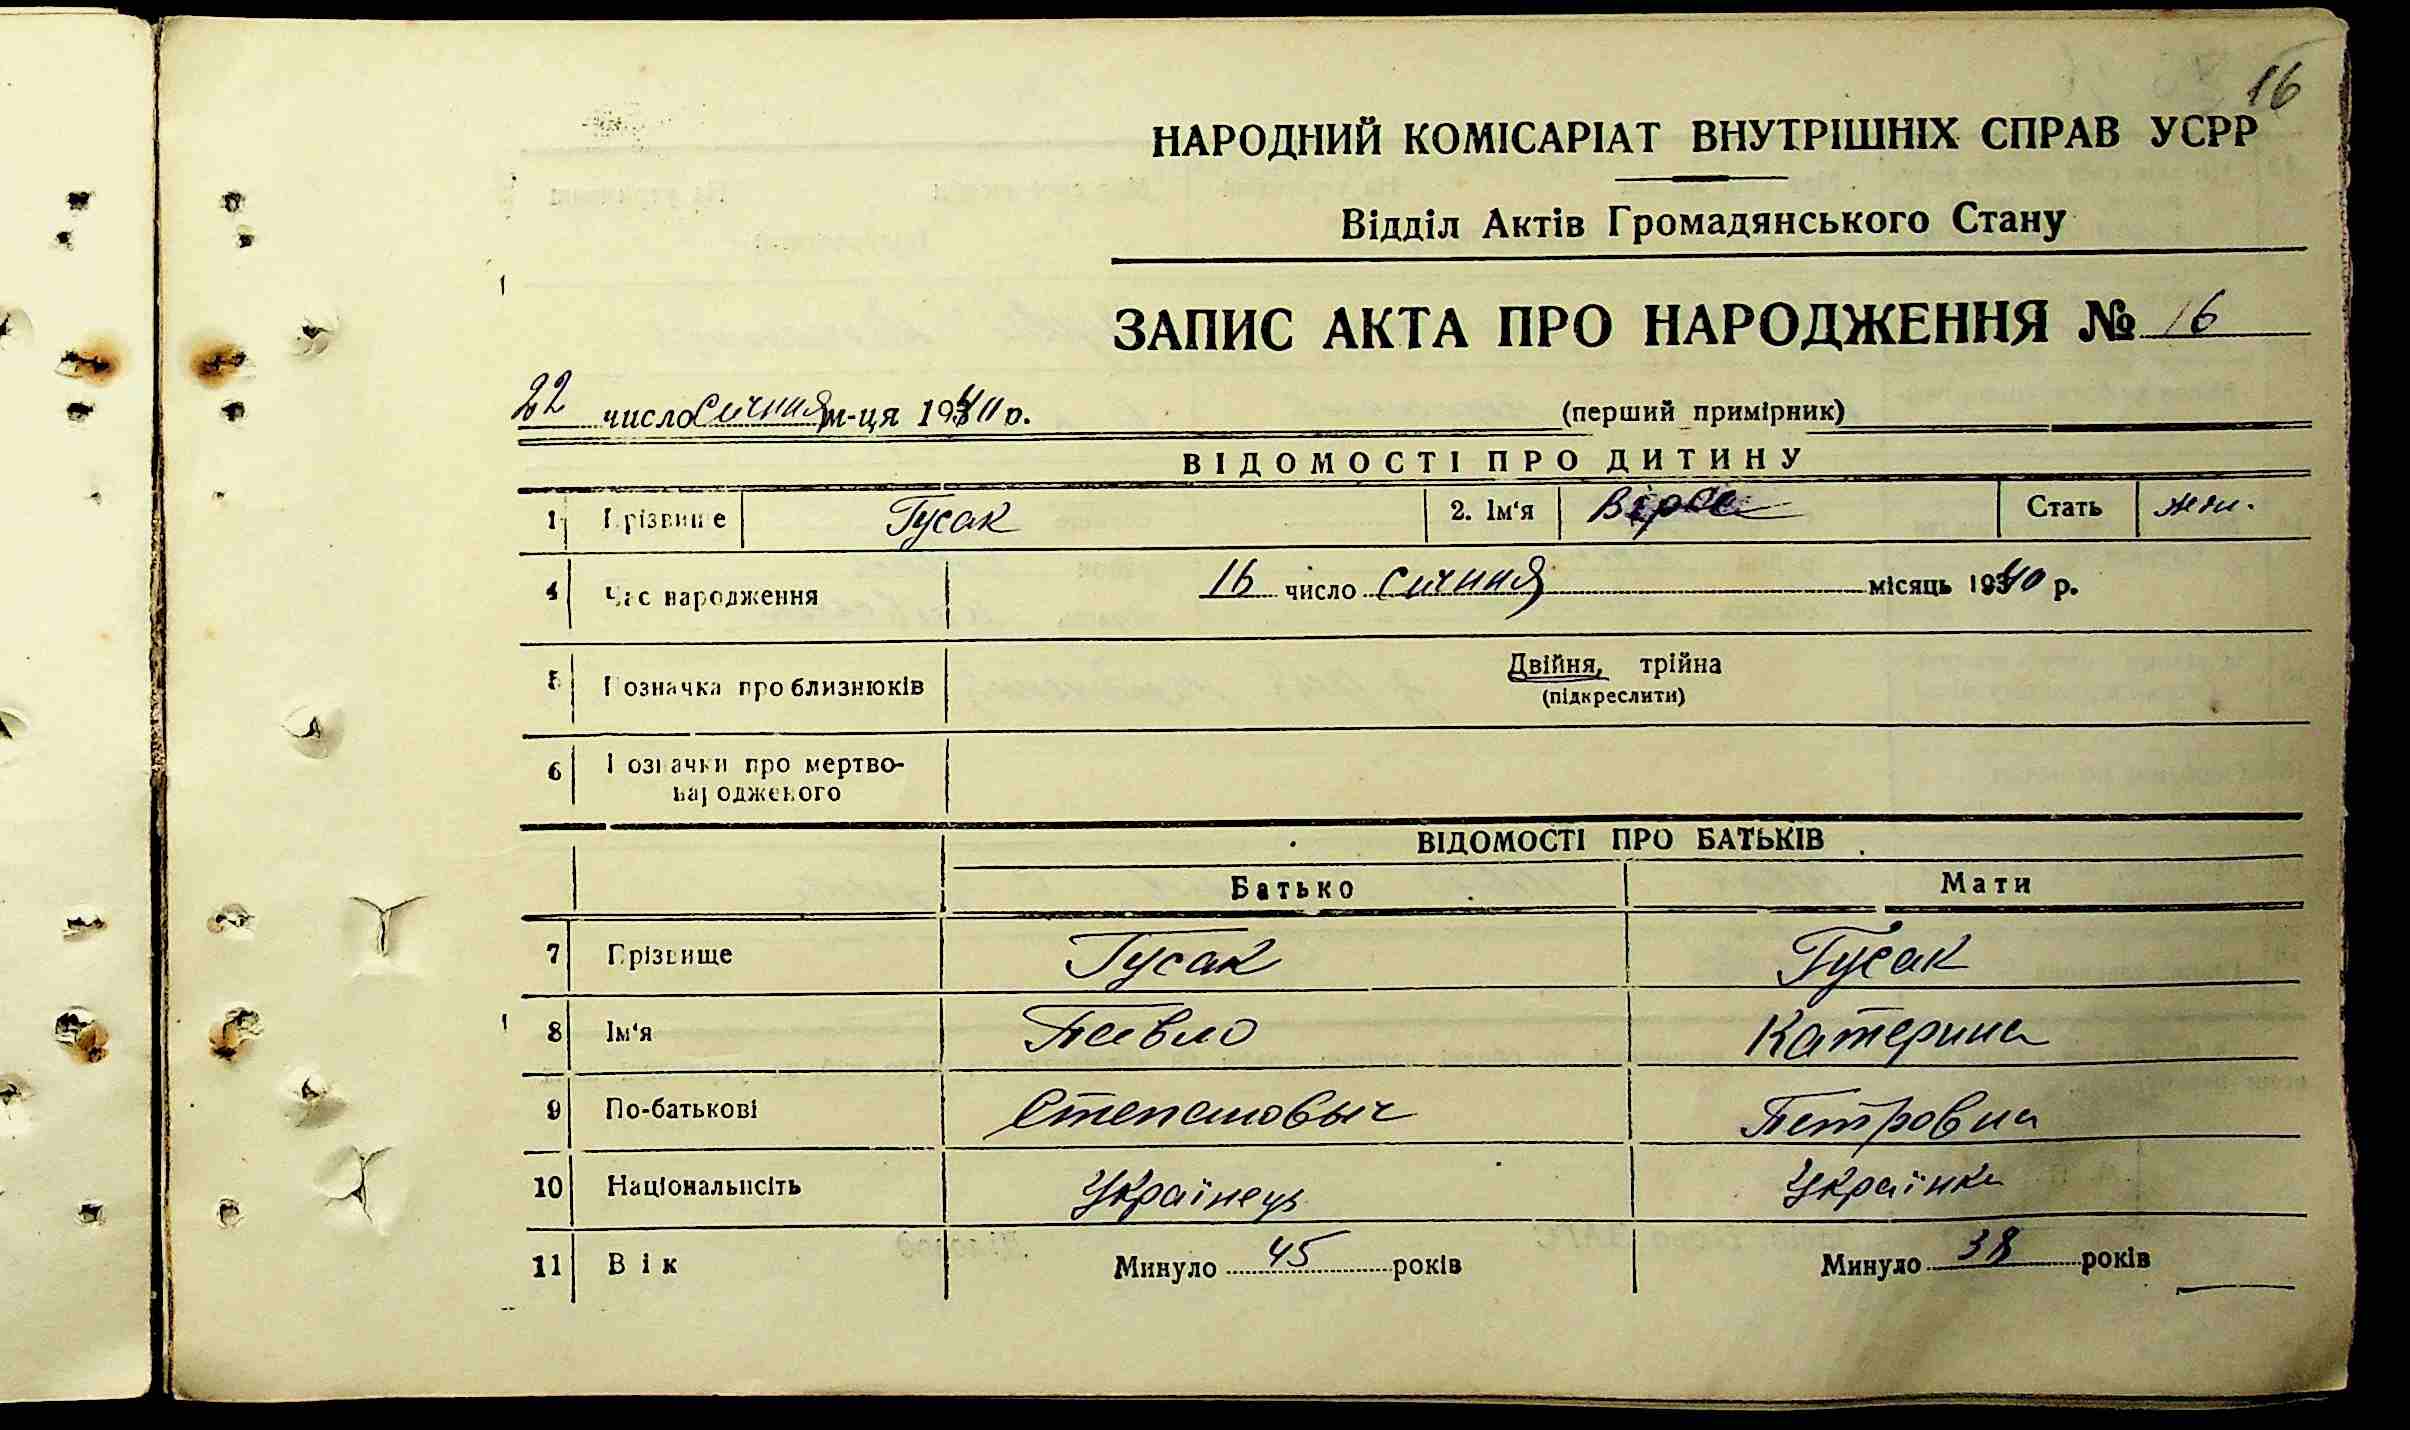 16
НАРОДНИЙ КОМІСАРІАТ ВНУТРІШНІХ СПРАВ УСРР
Відділ Актів Громадянського Стану
ЗАПИС АКТА ПРО НАРОДЖЕННЯ № 16
22 число Січня м-ця 1940 р. (перший примірник)
ВІДОМОСТІ ПРО ДИТИНУ
1 Прізвище Гусак 2. Ім'я Віра Стать жін.
4 Час народження 16 число Січня місяць 1940 р.
5 Позначка про близнюків Двійня, трійна
(підкреслити)
6 Позначки про мертво-
народженого
ВІДОМОСТІ ПРО БАТЬКІВ
Батько Мати
7 Прізвище Гусак Гусак
8 Ім'я Павло Катерина
9 По-батькові Степановыч Петровна
10 Національність Українець Українка
11 Вік Минуло 45 років Минуло 38 років